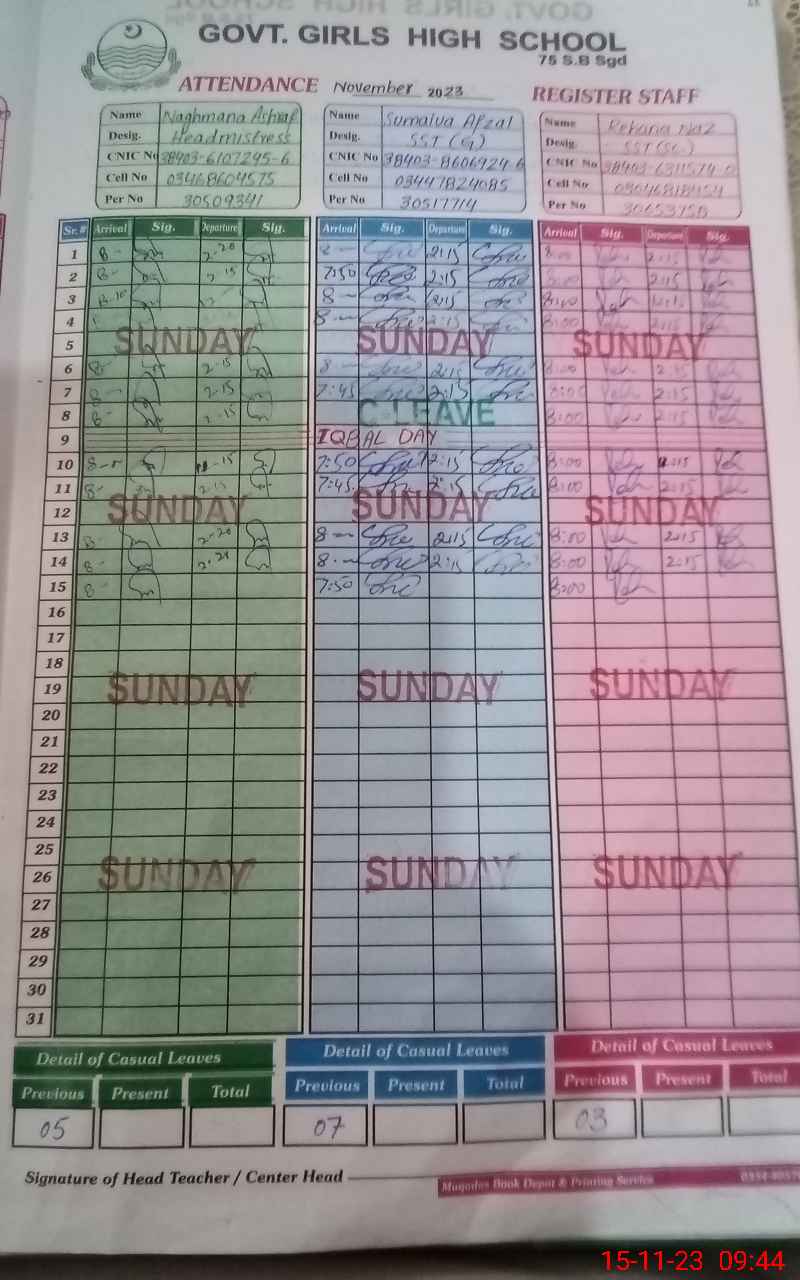 GOVT. GIRLS HIGH SCHOOL
75 S.B Sgd
ATTENDANCE November 2023 REGISTER STAFF
Name Naghmana Ashraf Name Sumaiva Afzal Name Rehana Naz
Desig. Headmistress Desig. SST (G) Desig. SST (Sc)
CNIC No 38403-6107295-6 CNIC No 38403-8606924-6 CNIC No
Cell No 03468604575 Cell No 03447824085 Cell No
Per No 30509341 Per No 30517714 Per No
Sr. # Arrival Sig. Departure Sig. Arrival Sig. Departure Sig. Arrival Sig. Departure Sig.
1 8- 2-20 2:15 8:00 2:15
2 8- 2-15 7:50 2:15 8:00 2:15
3 8- 2:15 8:00
4 8- 2:15 8:00
5 SUNDAY SUNDAY SUNDAY
6 8- 2-15 8- 2:15 8:00 2:15
7 8- 2-15 7:45 2:15 2:15
8 8- 2-15 C-LEAVE 8:00 2:15
9 IQBAL DAY
10 8- 7:50 2:15 8:00 2:15
11 8- 2-15 7:45 2:15 8:00 2:15
12 SUNDAY SUNDAY SUNDAY
13 8- 2-20 8- 2:15 8:00 2:15
14 8- 2-20 8- 2:15 8:00 2:15
15 8- 7:50 8:00
16
17
18
19 SUNDAY SUNDAY SUNDAY
20
21
22
23
24
25
26 SUNDAY SUNDAY SUNDAY
27
28
29
30
31
Detail of Casual Leaves Detail of Casual Leaves Detail of Casual Leaves
Previous Present Total Previous Present Total Previous Present Total
05 07 03
Signature of Head Teacher / Center Head
Muqadas Book Depot & Printing Service
15-11-23 09:44